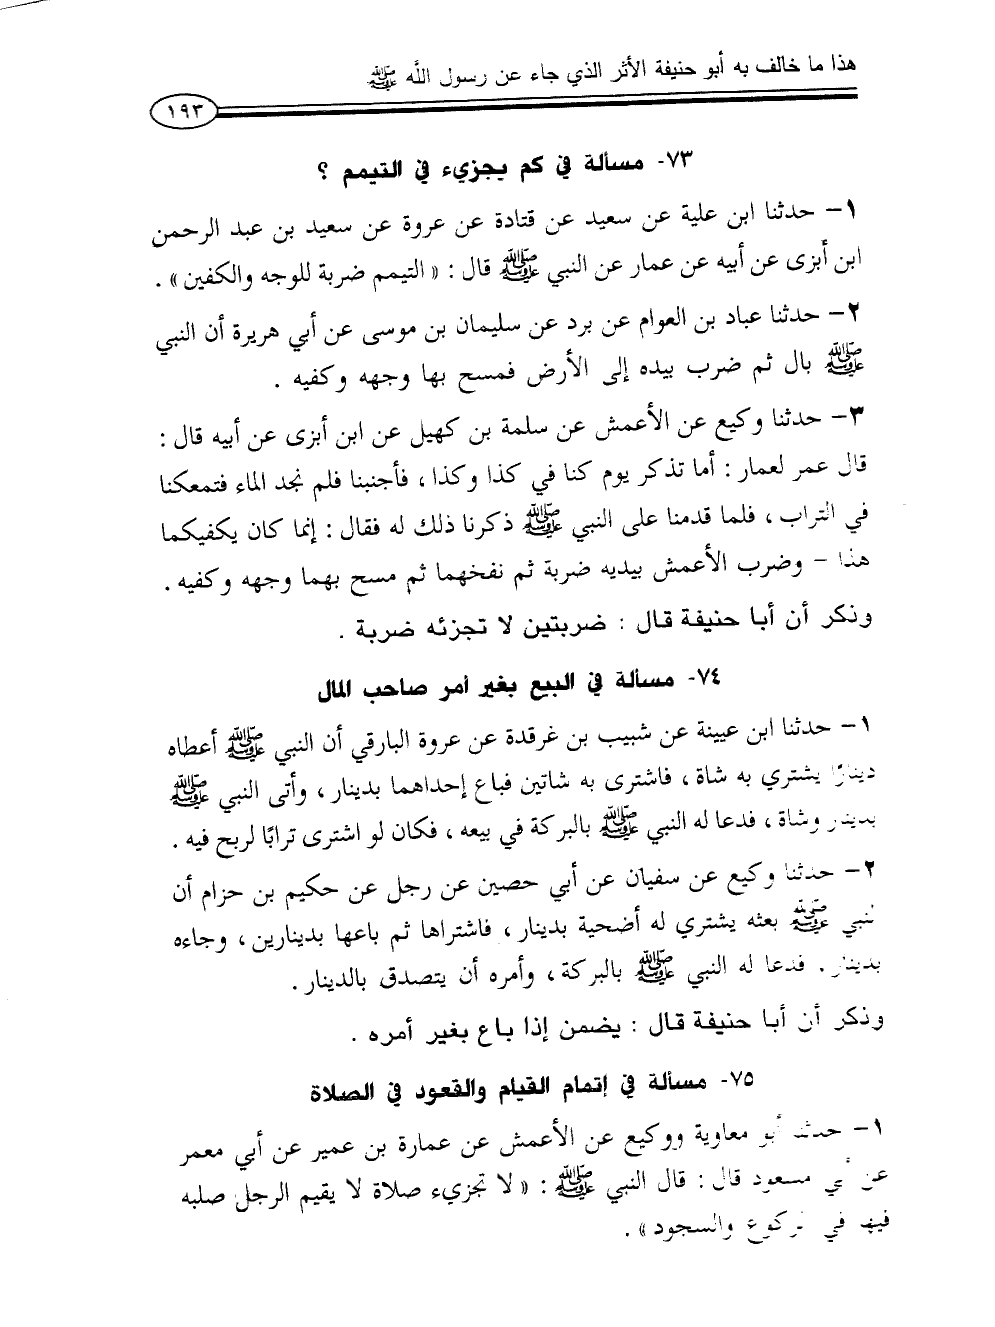 هذا ما خالف به أبو حنيفة الأثر الذي جاء عن رسول الله ﷺ
١٩٣
٧٣- مسألة في كم يجزيء في التيمم ؟
١- حدثنا ابن علية عن سعيد عن قتادة عن عروة عن سعيد بن عبد الرحمن
ابن أبزى عن أبيه عن عمار عن النبي ﷺ قال : « التيمم ضربة للوجه والكفين » .
٢- حدثنا عباد بن العوام عن برد عن سليمان بن موسى عن أبي هريرة أن النبي
ﷺ بال ثم ضرب بيده إلى الأرض فمسح بها وجهه وكفيه .
٣- حدثنا وكيع عن الأعمش عن سلمة بن كهيل عن ابن أبزى عن أبيه قال :
قال عمر لعمار : أما تذكر يوم كنا في كذا وكذا ، فأجنبنا فلم نجد الماء فتمعكنا
في التراب ، فلما قدمنا على النبي ﷺ ذكرنا ذلك له فقال : إنما كان يكفيكما
هذا - وضرب الأعمش بيديه ضربة ثم نفخهما ثم مسح بهما وجهه وكفيه .
وذكر أن أبا حنيفة قال : ضربتين لا تجزئه ضربة .
٧٤- مسألة في البيع بغير أمر صاحب المال
١- حدثنا ابن عيينة عن شبيب بن غرقدة عن عروة البارقي أن النبي ﷺ أعطاه
دينارًا يشتري به شاة ، فاشترى به شاتين فباع إحداهما بدينار ، وأتى النبي ﷺ
بدينار وشاة ، فدعا له النبي ﷺ بالبركة في بيعه ، فكان لو اشترى ترابًا لربح فيه .
٢- حدثنا وكيع عن سفيان عن أبي حصين عن رجل عن حكيم بن حزام أن
النبي ﷺ بعثه يشتري له أضحية بدينار ، فاشتراها ثم باعها بدينارين ، وجاءه
بدينار . فدعا له النبي ﷺ بالبركة ، وأمره أن يتصدق بالدينار .
وذكر أن أبا حنيفة قال : يضمن إذا باع بغير أمره .
٧٥- مسألة في إتمام القيام والقعود في الصلاة
١- حدثنا أبو معاوية ووكيع عن الأعمش عن عمارة بن عمير عن أبي معمر
عن أبي مسعود قال : قال النبي ﷺ : « لا تجزيء صلاة لا يقيم الرجل صلبه
فيها في الركوع والسجود » .